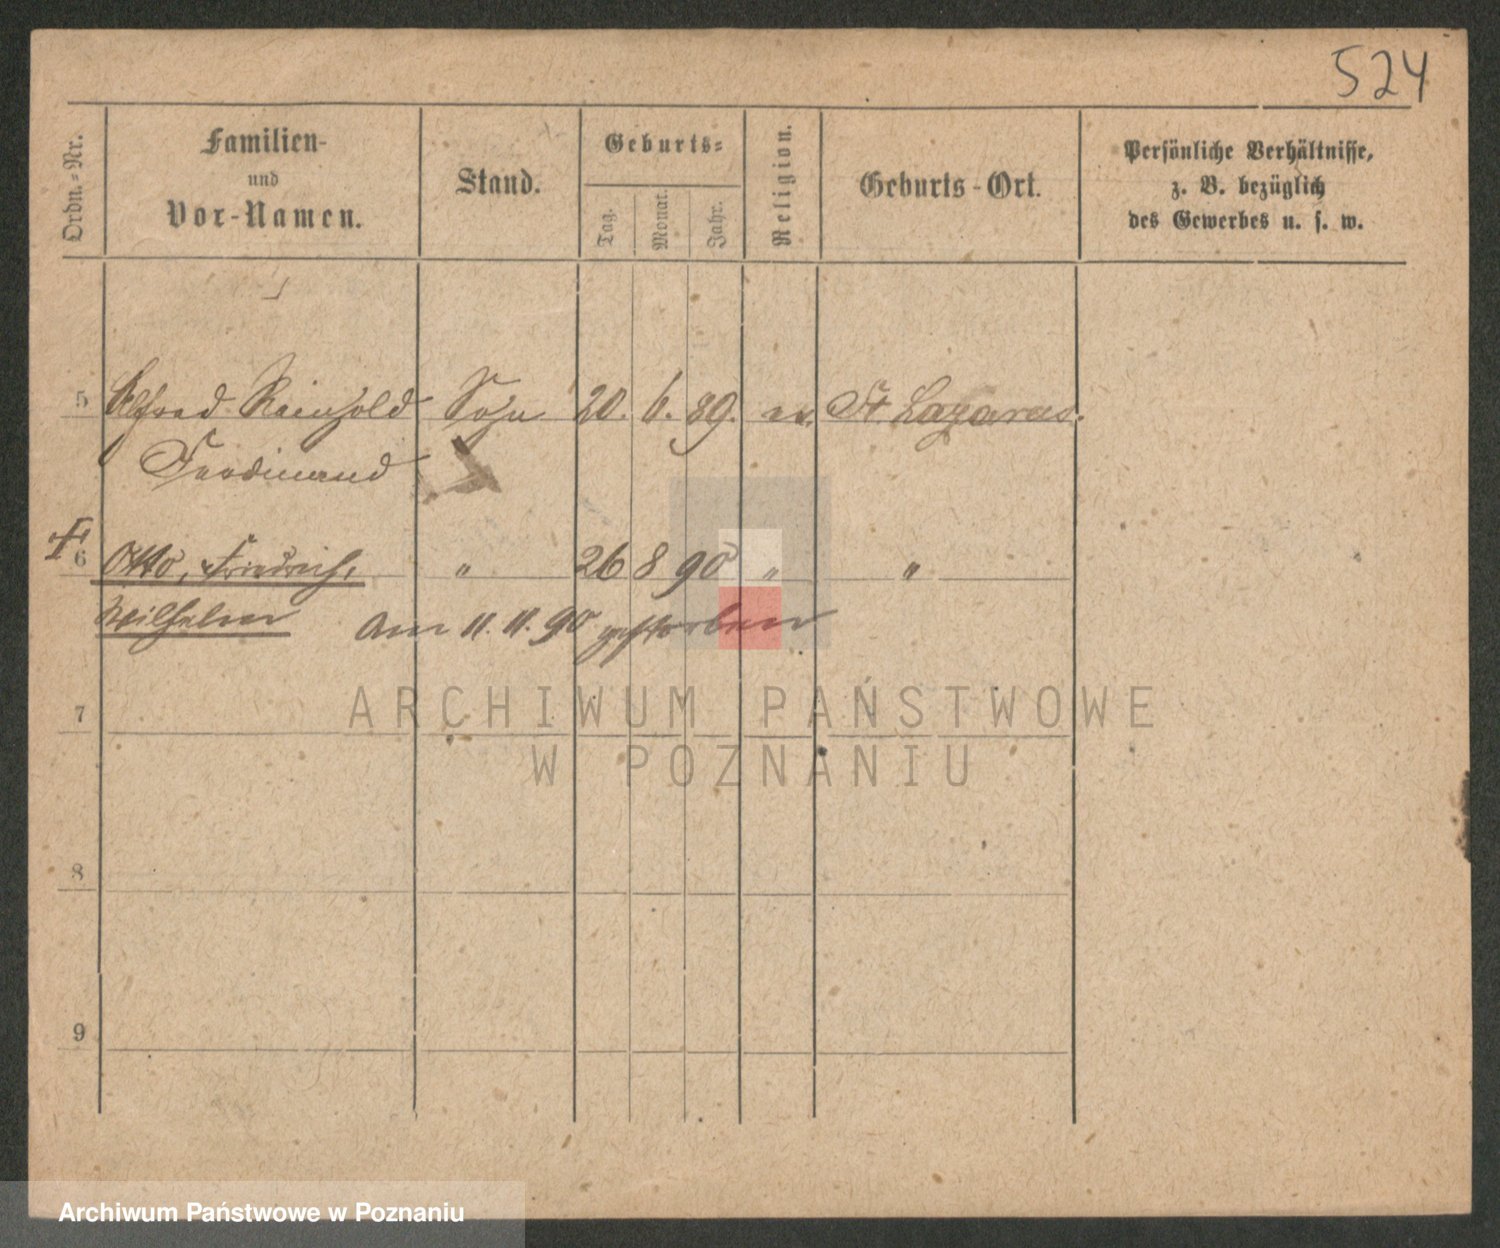 524
Ordn.-Nr.
Familien-
und
Vor-Namen.
Stand.
Geburts-
Tag.
Monat.
Jahr.
Religion.
Geburts-Ort.
Persönliche Verhältnisse,
z. B. bezüglich
des Gewerbes u. s. w.
5 Alfred Reinhold Sohn 20. 6. 89. ev. St. Lazarus.
Ferdinand
6 Otto, Friedrich, " 26 8 90 " "
Wilhelm am 11. 11. 90 gestorben
7
8
9
ARCHIWUM PAŃSTWOWE
W POZNANIU
Archiwum Państwowe w Poznaniu